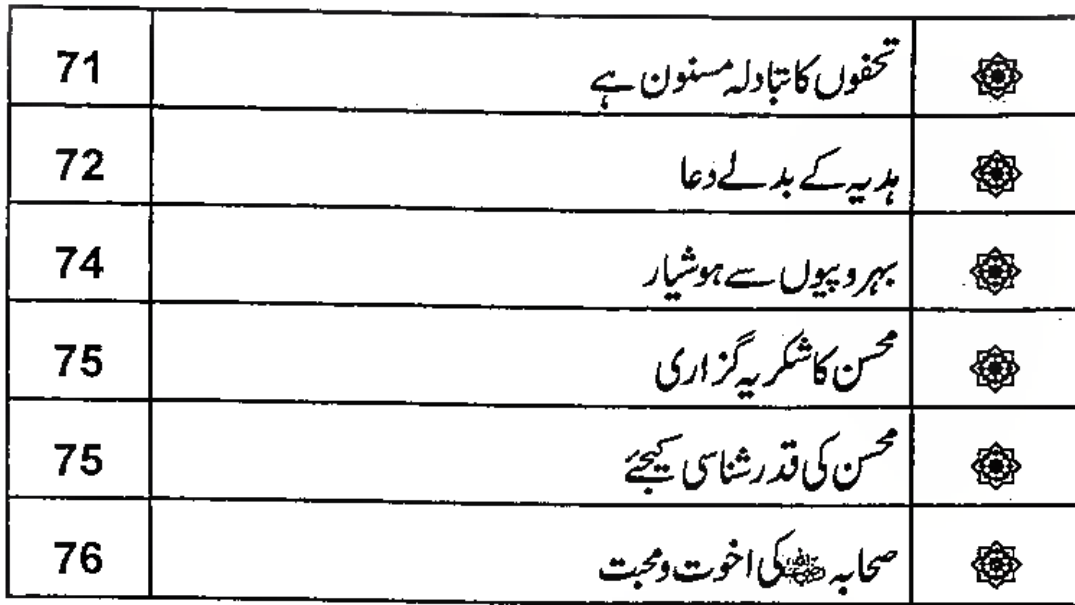 تحفوں کا تبادلہ مسنون ہے 71
ہدیہ کے بدلے دعا 72
بہروپیوں سے ہوشیار 74
محسن کا شکریہ گزاری 75
محسن کی قدر شناسی کیجئے 75
صحابہ رضی اللہ عنہم کی اخوت و محبت 76